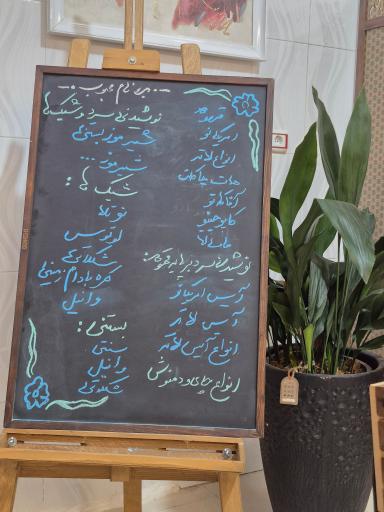 به نام محبوب
قهوه:
آمریکانو
انواع لاته
هات چاکلت
کاپوچینو
نوشیدنی سرد بر پایه قهوه:
آیس آمریکانو
آیس لاته
انواع آیس لاته
انواع چای و دمنوش
نوشیدنی سرد و شیک ها
شیر موز بستنی
شیر موز ...
شیک ها:
نوتلا
لوتوس
شکلاتی
کره بادام زمینی
وانیل
بستنی:
سنتی
وانیل
شکلاتی